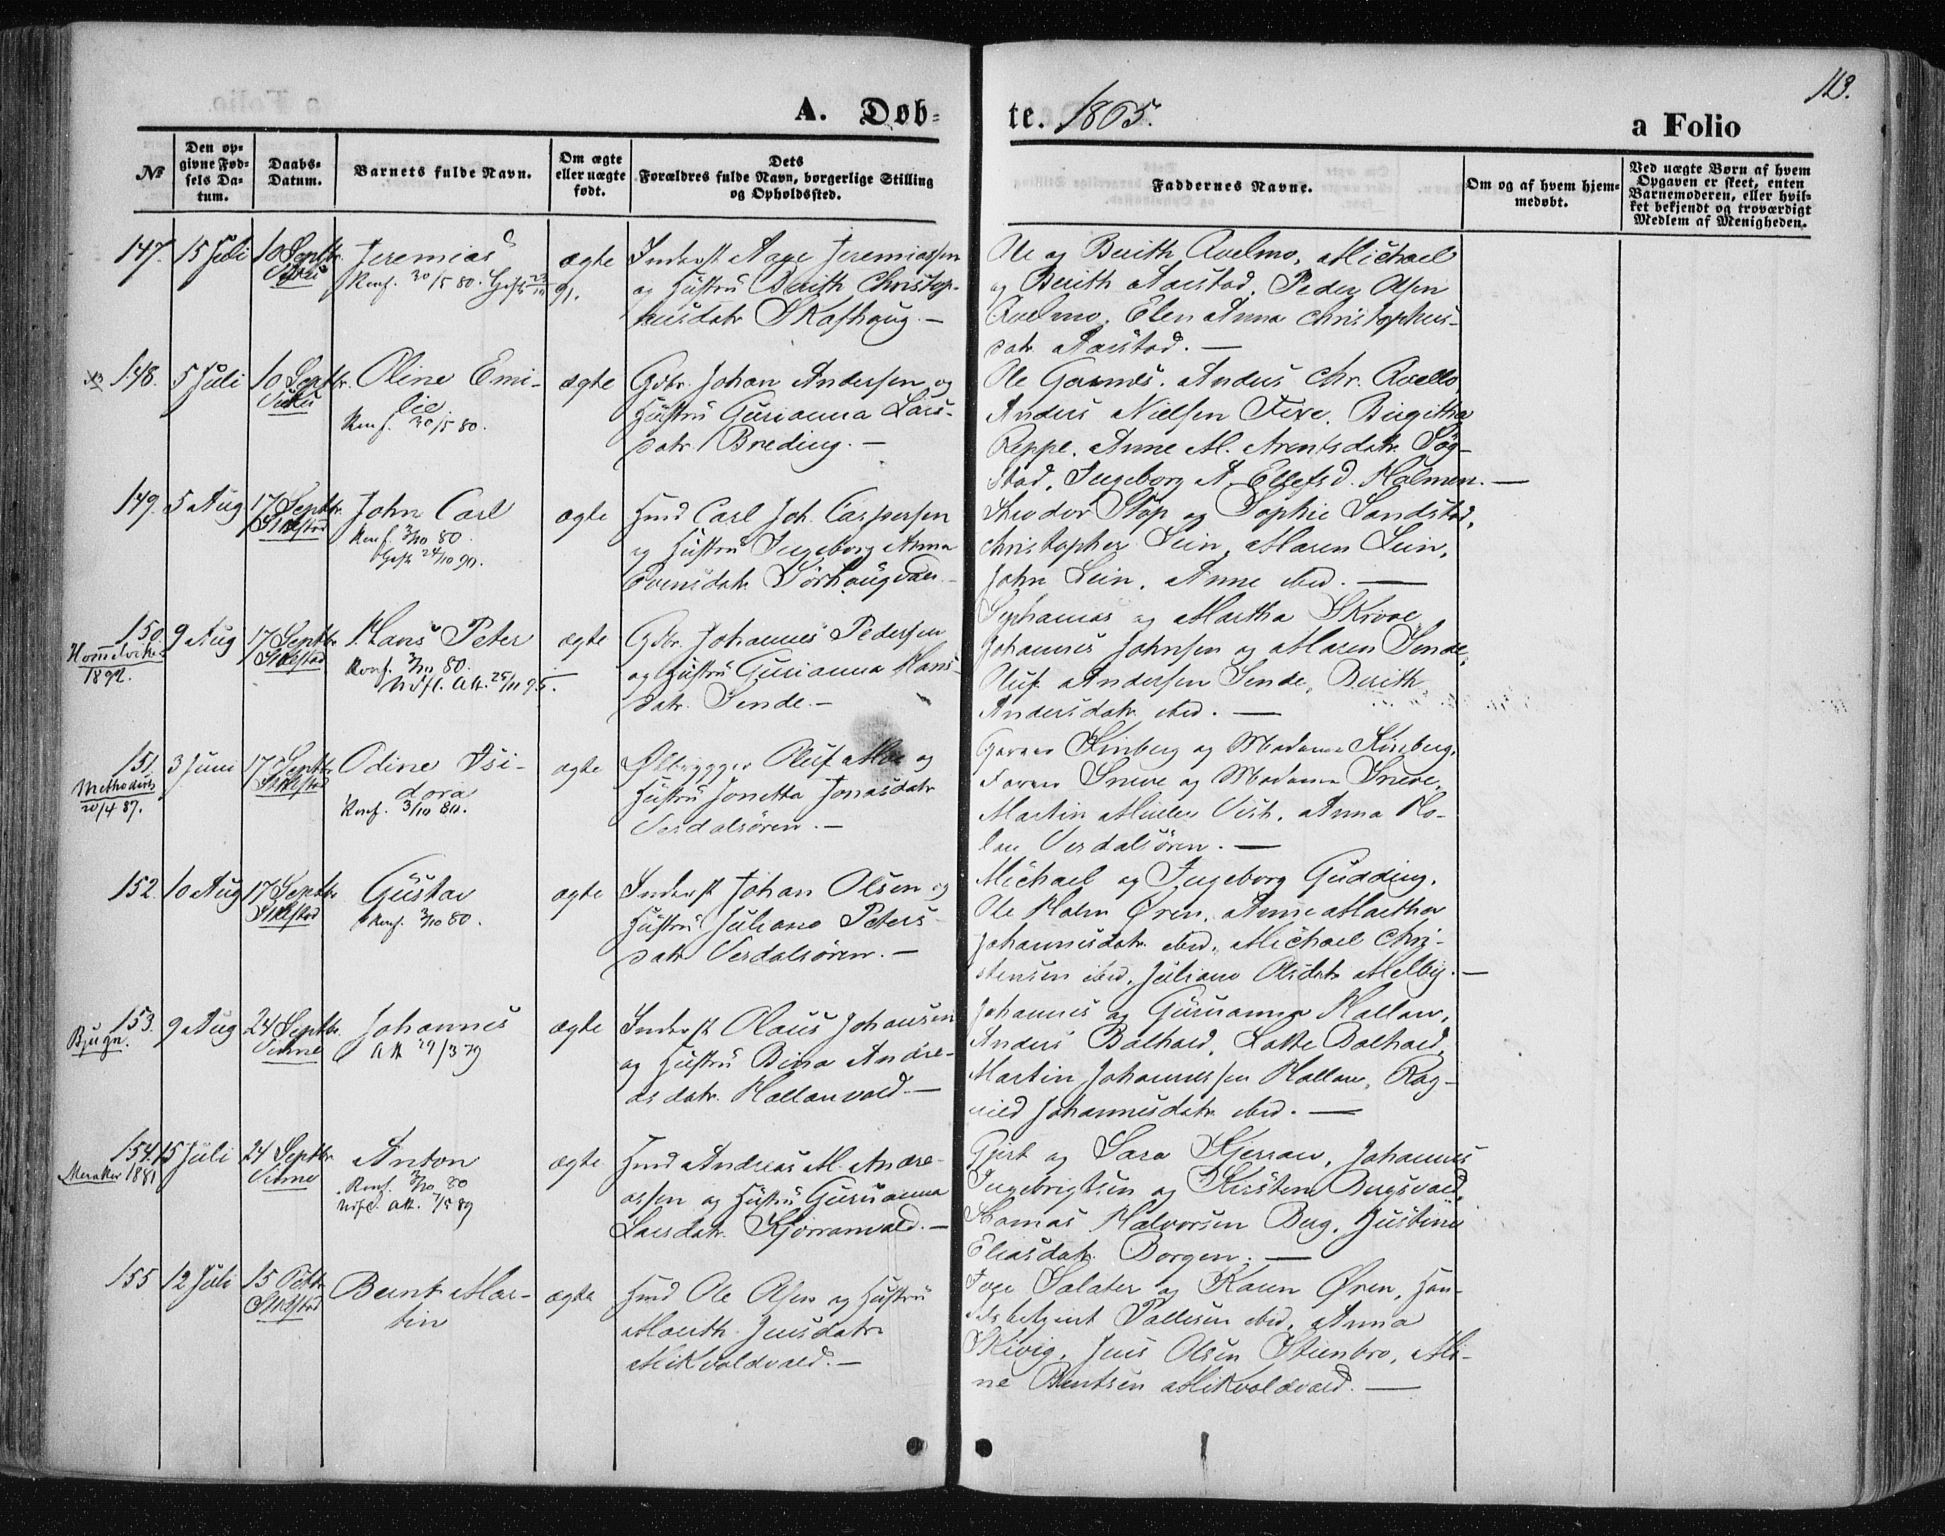 113.
A. Døb=
te. 1865.
a Folio
№
Den op-
givne Fød-
sels Da-
tum.
Daabs-
Datum.
Barnets fulde Navn.
Om ægte
eller uægte
født.
Dets
Forældres fulde Navn, borgerlige Stilling
og Opholdssted.
Faddernes Navne.
Om og af hvem hjem-
medøbt.
Ved uægte Børn af hvem
Opgaven er skeet, enten
Barnemoderen, eller hvil-
ket bekjendt og troværdigt
Medlem af Menigheden.
147. 15 Juli 10 Septbr. Jeremias ægte Inderst Aage Jeremiassen
Konf. 30/5 80.
91.
og Hustru Berith Christop-
hersdatr Skafhaug. —
Ole og Berith Qvelmo, Michael
og Berith Aarstad, Peder Olsen
Qvelmo, Elen Anna Christophers-
datr Aarstad. —
148. 5 Juli 10 Septbr. Oline Emi-
lie
Konf. 30/5 80.
ægte Gdbr. Johan Andersen og
Hustru Gurianna Lars-
datr. Breding. —
Ole Garnes. Anders Chr. Qvello
Anders Nielsen Five. Birgitha
Reppe. Anne M. Arentsdatr. Søg-
stad, Ingeborg A. Ellefsd. Holmen. —
149. 5 Aug 17 Septbr.
Stiklestad
John Carl
Konf. 3/10 80.
Gift 24/10 90.
ægte Hmd Carl Joh. Caspersen
og Hustru Ingeborg Anna
Svensdatr.
Theodor Støp og Sophie Sandstad,
Christopher Lein, Maren Lein,
John Lein, Anne ibid. —
150. 9 Aug 17 Septbr.
Stiklestad
Hommelviken
1892.
Hans Peter
Konf. 3/10 80.
Udfl. Att. 25/11 95.
ægte Gdbr. Johannes Pedersen
og Hustru Gurianna Hans-
datr. Sende. —
og Martha Skrove,
Johannes Johnsen og Maren Sende,
Oluf Andersen Sende, Berith
Andersdatr. ibid. —
151. 3 Juni 17 Septbr.
Stiklestad
Methodist
20/4 87.
Odine Isi-
dora
Konf. 3/10 80.
ægte Oluf Moe og
Hustru Jonetta Jonasdatr.
Verdalsøren. —
Garver Kinberg og Madame Kinberg.
Farver Sneve og Madame Sneve,
Martin Müller Vist, Anna Ho-
lan Verdalsøren. —
152. 10 Aug 17 Septbr.
Stiklestad
Gustav
Konf. 3/10 80.
ægte Inderst Johan Olsen og
Hustru Juliane Peters-
datr Verdalsøren. —
Michael og Ingeborg Gudding.
Ole Holm Øren, Anne Martha
Johannesdatr. ibid, Michael Chri-
stensen ibid, Juliane Olsdatr Melby. —
153. 9 Aug 24 Septbr.
Vinne
Bjugn.
Johannes
Att 29/3 79
ægte Inderst Olaus Johansen
og Hustru Bina Andre-
asdatr. Hallanvald —
Johannes og Gurianna Hallan,
Anders Balhald, Lotte Balhald,
Martin Johannessen Hallan, Rag-
nild Johannesdatr. ibid. —
154. 15 Juli 24 Septbr.
Vinne
Meraker 1881
Anton
Konf. 3/10 80
Udfl. Att. 7/5 89
ægte Hmd Andreas M. Andre-
assen og Hustru Gurianna
Larsdatr. Kjørranvald. —
Gjert og Sara Kjerran, Johannes
Ingebrigtsen og Kirsten Bergsvald,
Thomas Halvorsen Berg, Justine
Eliasdatr. Borgen. —
155 12 Juli 15 Octbr.
Stiklestad
Bernt Mar-
tin
ægte Hmd Ole Olsen og Hustru
Jensdatr.
Mikvoldvald. —
Salater og Karen Øren, Han-
delsbetjent Pallesen ibid, Anna
Skivig, Jens Olsen Stenbro, Mi-
ne Berntsen Mikvoldvald. —